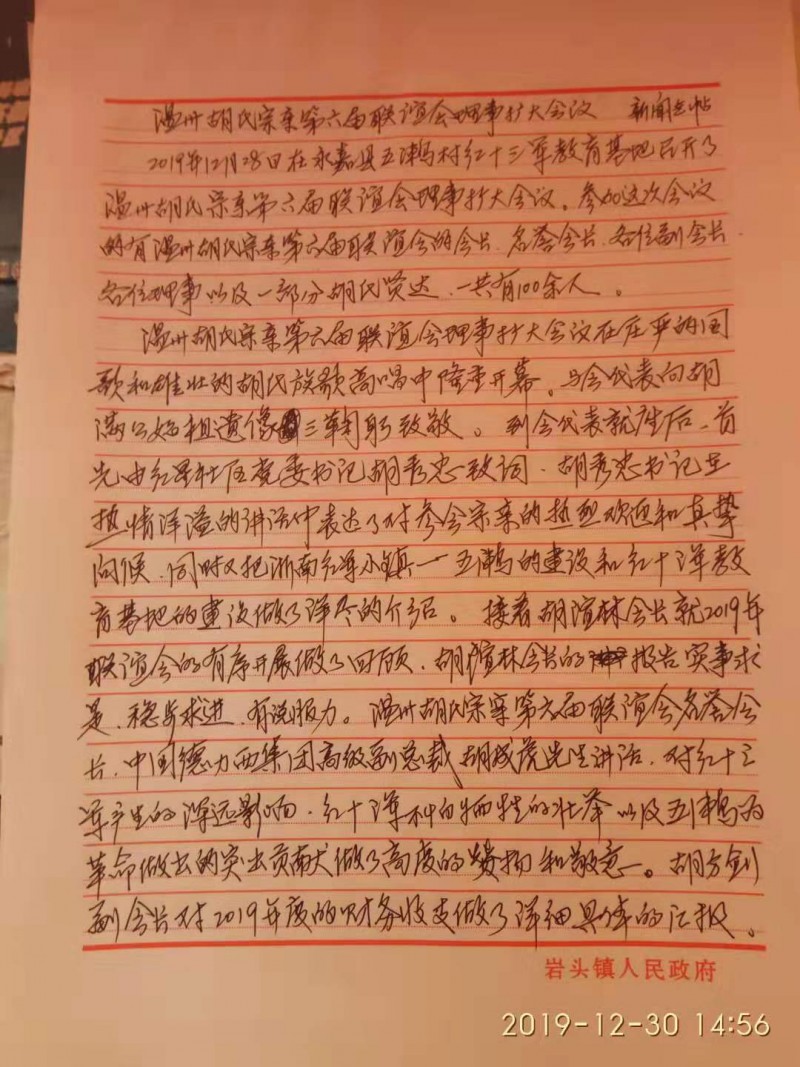 温州胡氏宗亲第六届联谊会理事扩大会议 新闻
2019年12月28日在永嘉县五𤄵村红十三军教育基地召开了
温州胡氏宗亲第六届联谊会理事扩大会议。参加这次会议
的有温州胡氏宗亲第六届联谊会的会长、名誉会长、各位副会长、
各位理事以及一部分胡氏贤达、一共有100余人。
温州胡氏宗亲第六届联谊会理事扩大会议在庄严的国
歌和雄壮的胡氏族歌高唱中隆重开幕。与会代表向胡
满公始祖遗像三鞠躬致敬。到会代表就座后、首
先由红星社区党委书记胡秀忠致词、胡秀忠书记在
热情洋溢的讲话中表达了对参会宗亲的热烈欢迎和真挚
问候、同时又把浙南红军小镇一五𤄵的建设和红十三军教
育基地的建设做了详尽的介绍。接着胡渲林会长就2019年
联谊会的有序开展做了回顾、胡渲林会长的报告实事求
是、稳步求进、有说服力。温州胡氏宗亲第六届联谊会名誉会
长、中国德力西集团高级副总裁胡成虎先生讲话、对红十三
军产生的深远影响、红十三军不怕牺牲的壮举以及五𤄵为
革命做出的突出贡献做了高度的赞扬和敬意。胡方剑
副会长对2019年度的财务收支做了详细具体的汇报。
岩头镇人民政府
2019-12-30 14:56